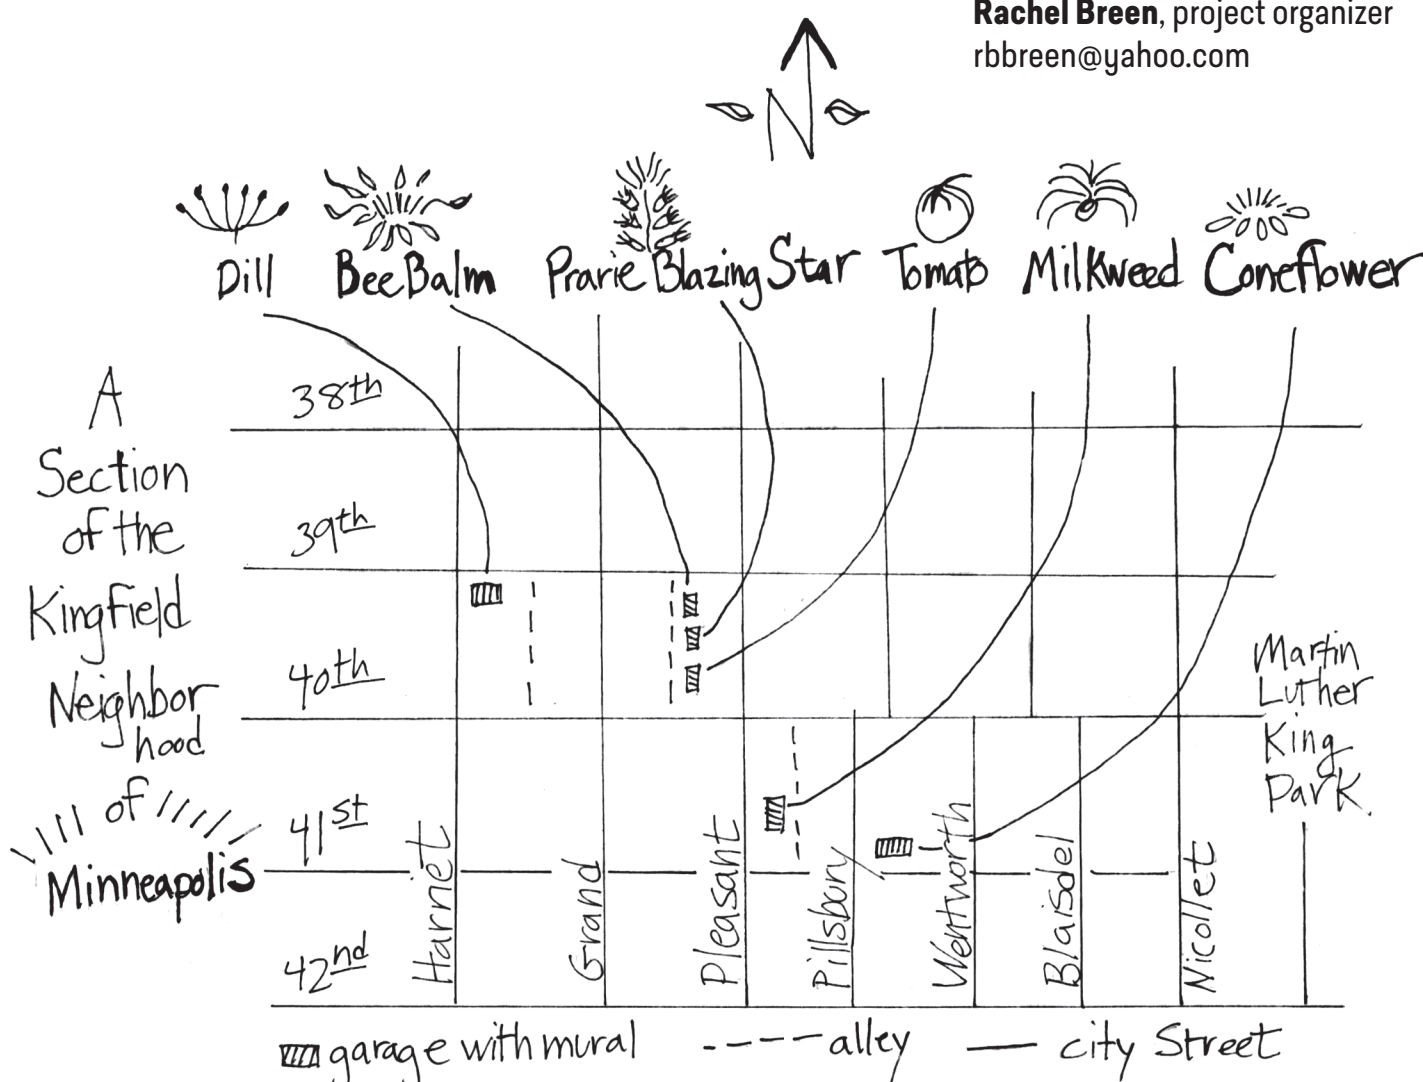 Rachel Breen, project organizer
rbbreen@yahoo.com
N
Dill
Bee Balm
Prarie Blazing Star
Tomato
Milkweed
Coneflower
A
Section
of the
Kingfield
Neighbor
hood
of
Minneapolis
38th
39th
40th
41st
42nd
Harriet
Grand
Pleasant
Pillsbury
Wentworth
Blaisdel
Nicollet
Martin
Luther
King
Park
garage with mural
alley
city Street